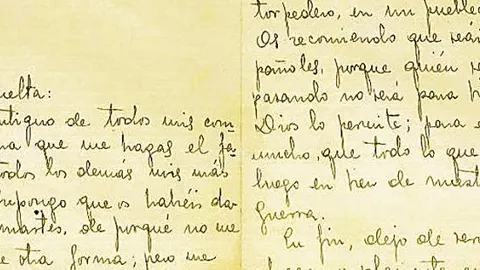 uelta:
ntiguo de todos mis com-
na que me hagas el fa-
todos los demás mis más
upongo que os habéis da-
martes, de porqué no me
e otra forma; pero me
torpedero, en un pueblec
Os recomiendo que seái
pañoles, porque quién
pasando no será para
Dios lo permite; para e
mucho, que todo lo que
luego en bien de nuest
Guerra.
En fin, dejo de ser